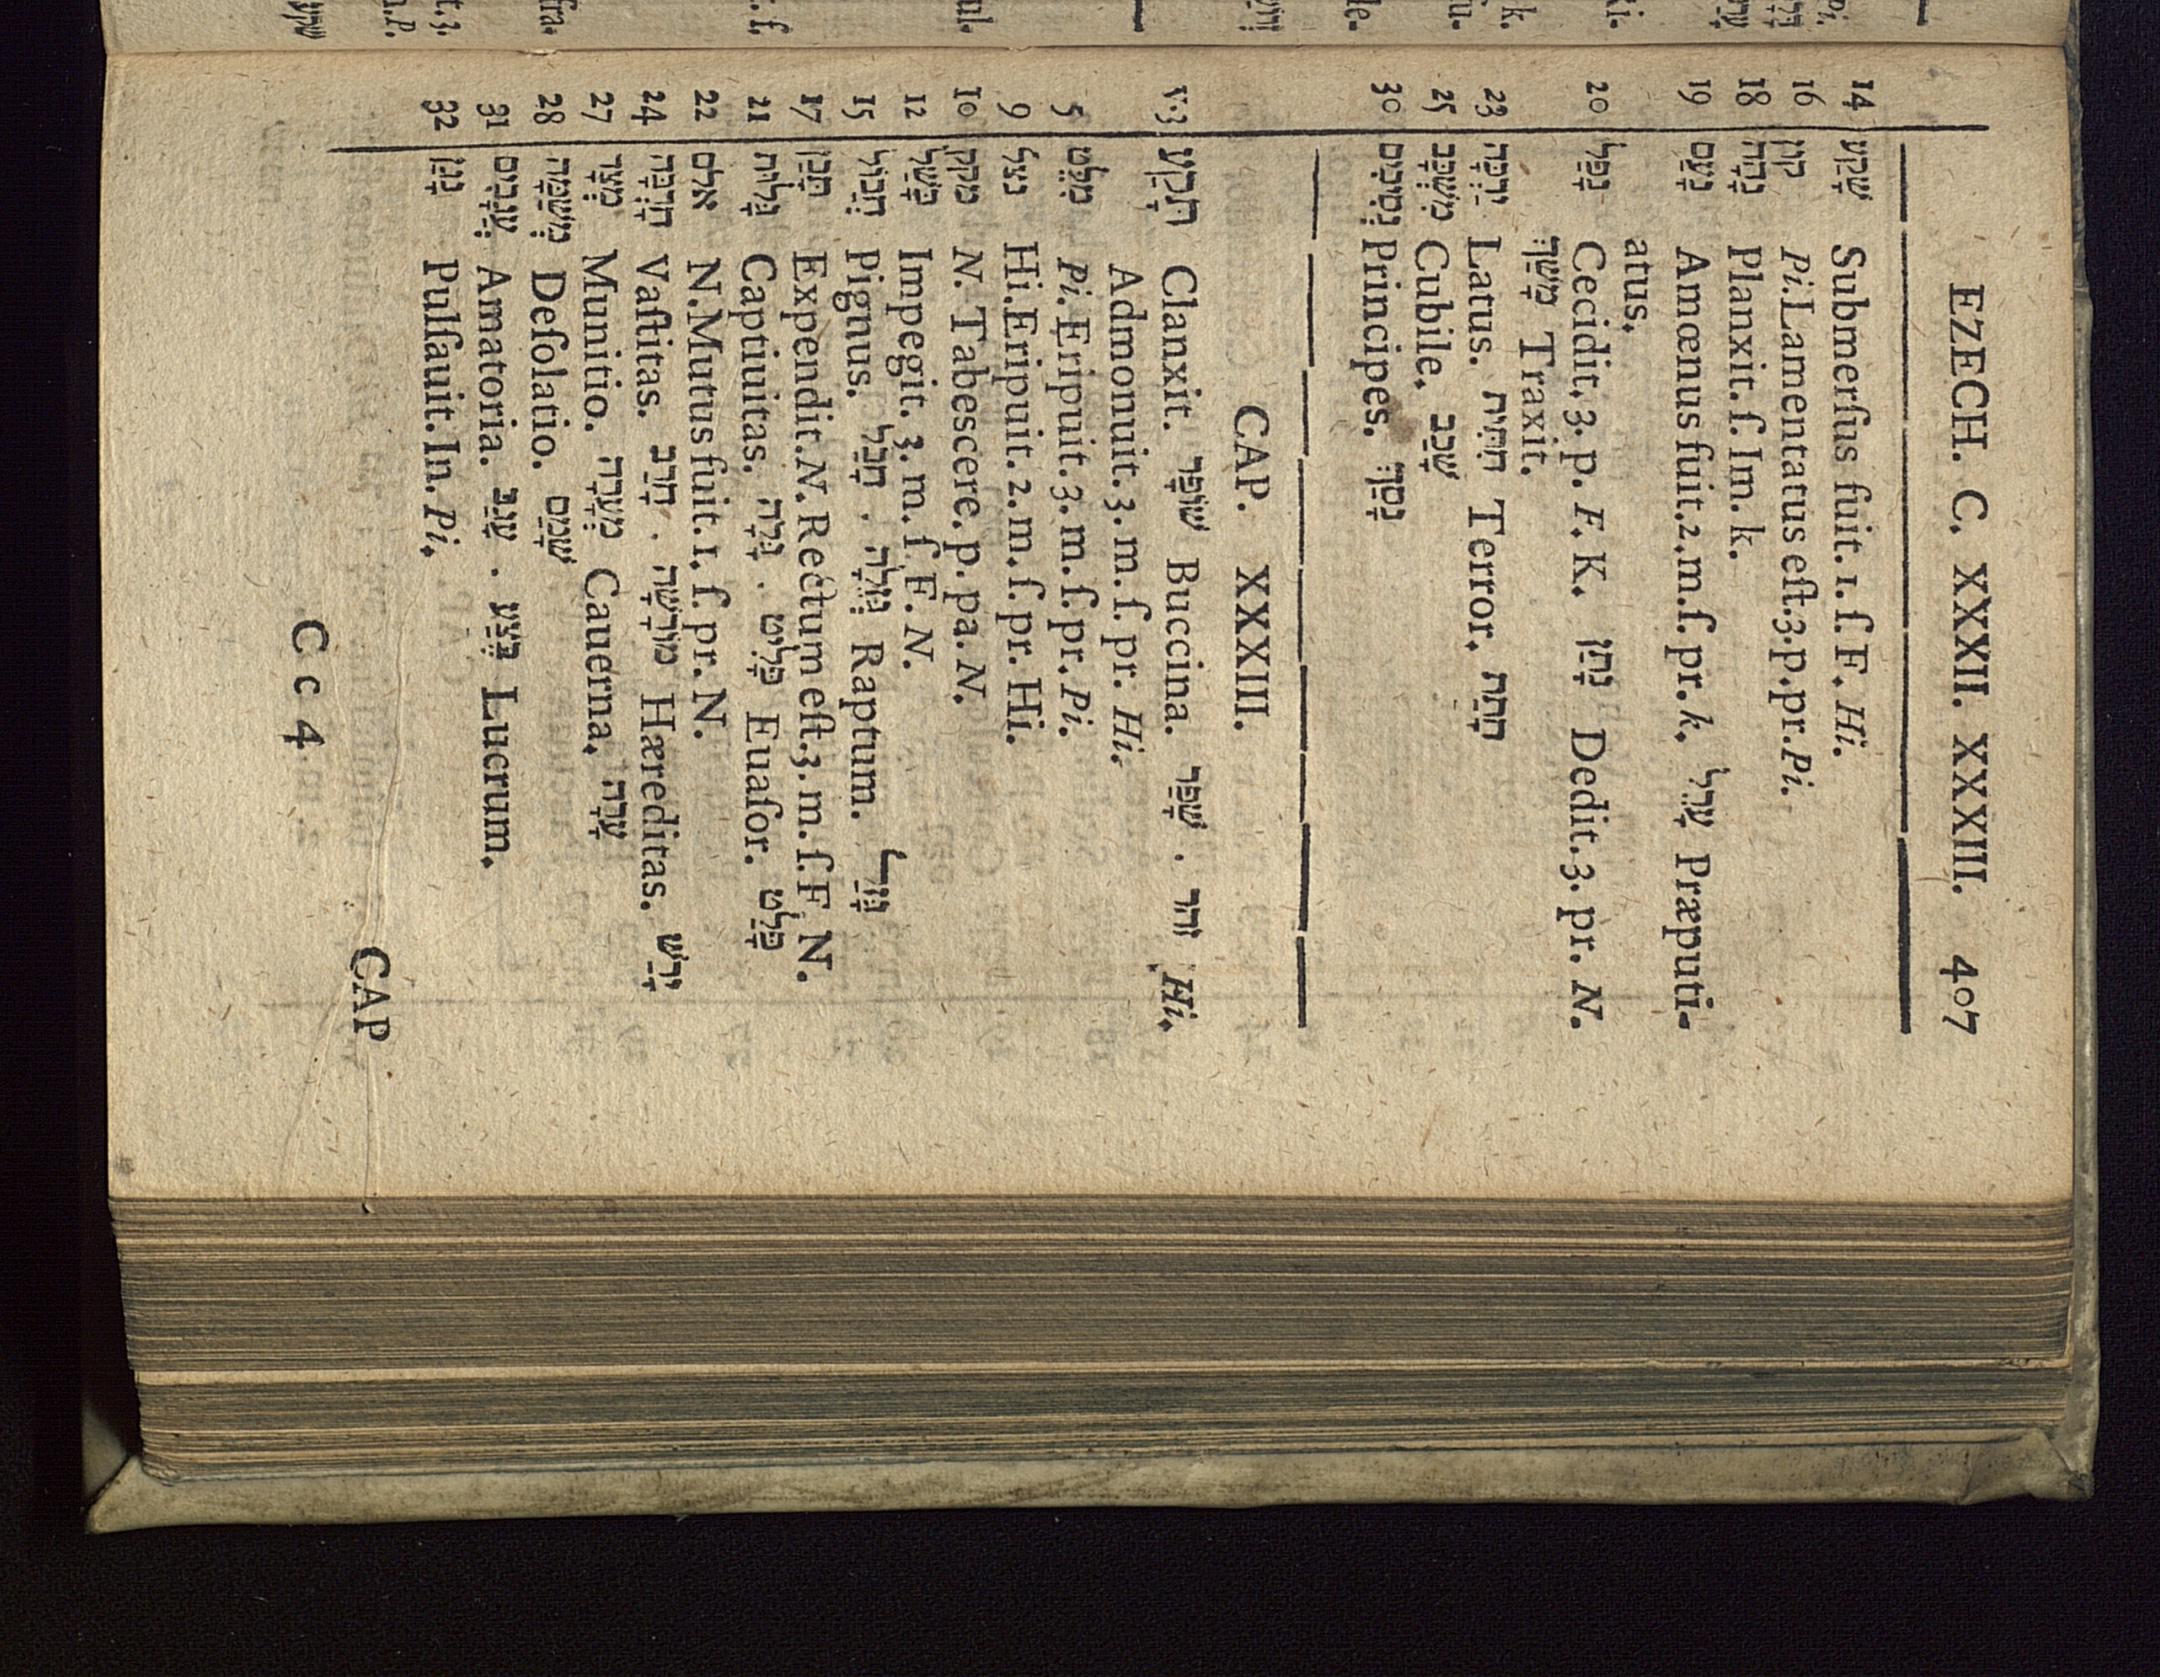 EZECH. C. XXXII. XXXIII. 407
14 שָׁקַע Submerſus fuit. 1. ſ. F. Hi.
16 קוֹן Pi. Lamentatus eſt. 3. p. pr. Pi.
18 נָהָה Planxit. ſ. Im. k.
19 נָעַם Amœnus fuit. 2. m. ſ. pr. k. עָרֵל Præputi-
atus.
20 נָפַל Cecidit. 3. p. F. K. נָתַן Dedit. 3. pr. N.
מָשַׁךְ Traxit.
23 יַרְכָּה Latus. חִתִּית Terror. חָתַת
25 מִשְׁכָּב Cubile. שָׁכַב
30 נְסִיכִים Principes. נָסַךְ
CAP. XXXIII.
v. 3 תָּקַע Clanxit. שׁוֹפָר Buccina. שָׁפַר . זהר Hi.
Admonuit. 3. m. ſ. pr. Hi.
5 מִלֵּט Pi. Eripuit. 3. m. ſ. pr. Pi.
9 נצל Hi. Eripuit. 2. m. ſ. pr. Hi.
10 מקק N. Tabescere. p. pa. N.
12 כָּשַׁל Impegit. 3. m. ſ. F. N.
15 חֲבוֹל Pignus. חָבַל . גְּזֵלָה Raptum. גָּזַל
17 תָּכַן Expendit. N. Rectum eſt. 3. m. ſ. F. N.
21 גָּלוּת Captiuitas. גָּלָה . פָּלִיט Euaſor. פָּלַט
22 אלם N. Mutus fuit. 1. ſ. pr. N.
24 חָרְבָּה Vaſtitas. חָרַב . מוֹרָשָׁה Hæreditas. יָרַשׁ
27 מְצָד Munitio. מְעָרָה Cauerna. עָרָה
28 מְשַׁמָּה Deſolatio. שָׁמַם
31 עֲגָבִים Amatoria. עָגַב . בֶּצַע Lucrum.
32 נָגַן Pulſauit. In. Pi.
CAP
C c 4